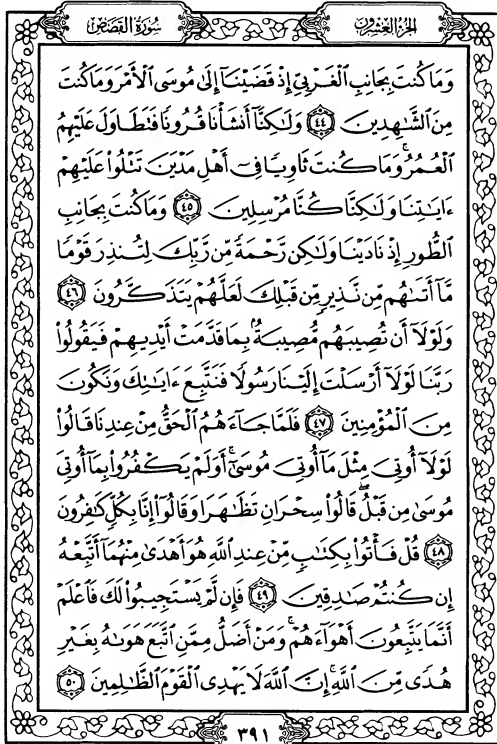 الجزء العشرون
سورة القصص
وَمَا كُنتَ بِجَانِبِ ٱلْغَرْبِىِّ إِذْ قَضَيْنَآ إِلَىٰ مُوسَى ٱلْأَمْرَ وَمَا كُنتَ
مِنَ ٱلشَّـٰهِدِينَ ٤٤ وَلَـٰكِنَّآ أَنشَأْنَا قُرُونًا فَتَطَاوَلَ عَلَيْهِمُ
ٱلْعُمُرُ ۚ وَمَا كُنتَ ثَاوِيًا فِىٓ أَهْلِ مَدْيَنَ تَتْلُوا۟ عَلَيْهِمْ
ءَايَـٰتِنَا وَلَـٰكِنَّا كُنَّا مُرْسِلِينَ ٤٥ وَمَا كُنتَ بِجَانِبِ
ٱلطُّورِ إِذْ نَادَيْنَا وَلَـٰكِن رَّحْمَةً مِّن رَّبِّكَ لِتُنذِرَ قَوْمًا
مَّآ أَتَىٰهُم مِّن نَّذِيرٍ مِّن قَبْلِكَ لَعَلَّهُمْ يَتَذَكَّرُونَ ٤٦
وَلَوْلَآ أَن تُصِيبَهُم مُّصِيبَةٌۢ بِمَا قَدَّمَتْ أَيْدِيهِمْ فَيَقُولُوا۟
رَبَّنَا لَوْلَآ أَرْسَلْتَ إِلَيْنَا رَسُولًا فَنَتَّبِعَ ءَايَـٰتِكَ وَنَكُونَ
مِنَ ٱلْمُؤْمِنِينَ ٤٧ فَلَمَّا جَآءَهُمُ ٱلْحَقُّ مِنْ عِندِنَا قَالُوا۟
لَوْلَآ أُوتِىَ مِثْلَ مَآ أُوتِىَ مُوسَىٰٓ ۚ أَوَلَمْ يَكْفُرُوا۟ بِمَآ أُوتِىَ
مُوسَىٰ مِن قَبْلُ ۖ قَالُوا۟ سِحْرَانِ تَظَـٰهَرَا وَقَالُوٓا۟ إِنَّا بِكُلٍّ كَـٰفِرُونَ
٤٨ قُلْ فَأْتُوا۟ بِكِتَـٰبٍ مِّنْ عِندِ ٱللَّهِ هُوَ أَهْدَىٰ مِنْهُمَآ أَتَّبِعْهُ
إِن كُنتُمْ صَـٰدِقِينَ ٤٩ فَإِن لَّمْ يَسْتَجِيبُوا۟ لَكَ فَٱعْلَمْ
أَنَّمَا يَتَّبِعُونَ أَهْوَآءَهُمْ ۚ وَمَنْ أَضَلُّ مِمَّنِ ٱتَّبَعَ هَوَىٰهُ بِغَيْرِ
هُدًى مِّنَ ٱللَّهِ ۚ إِنَّ ٱللَّهَ لَا يَهْدِى ٱلْقَوْمَ ٱلظَّـٰلِمِينَ ٥٠
٣٩١